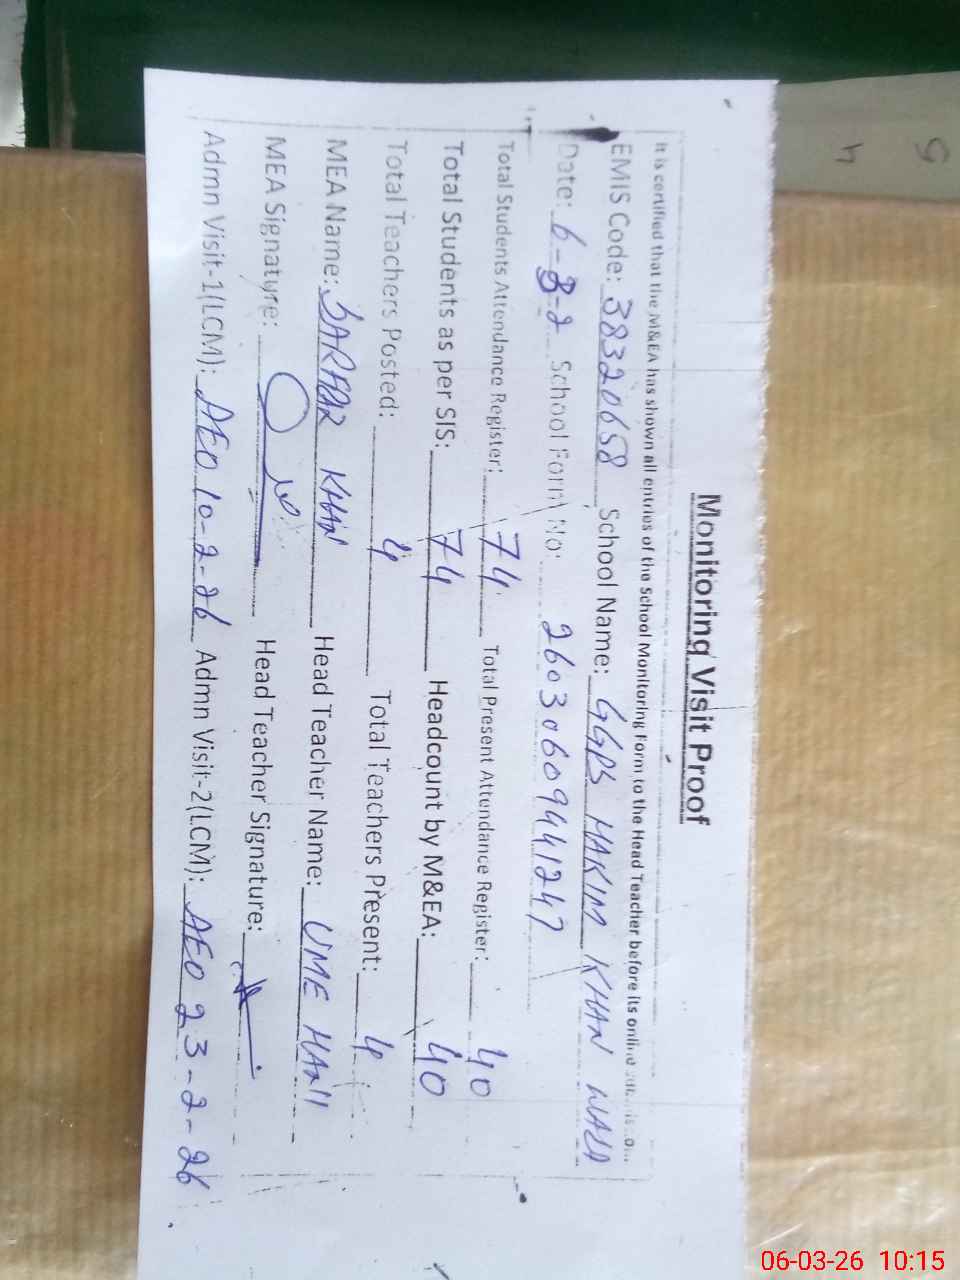 Monitoring Visit Proof
It is certified that the M&EA has shown all entries of the School Monitoring Form to the Head Teacher before its online
EMIS Code: 38320658 School Name: GGPS HAKIM KHAN WALA
Date: 6-3-2 School Form No: 26030609441247
Total Students Attendance Register: 74 Total Present Attendance Register: 40
Total Students as per SIS: 74 Headcount by M&EA: 40
Total Teachers Posted: 4 Total Teachers Present: 4
MEA Name: SARFRAZ KHAN Head Teacher Name: UME HANI
MEA Signature: Head Teacher Signature:
Admn Visit-1(LCM): AEO 10-2-26 Admn Visit-2(LCM): AEO 23-2-26
5
4
06-03-26 10:15